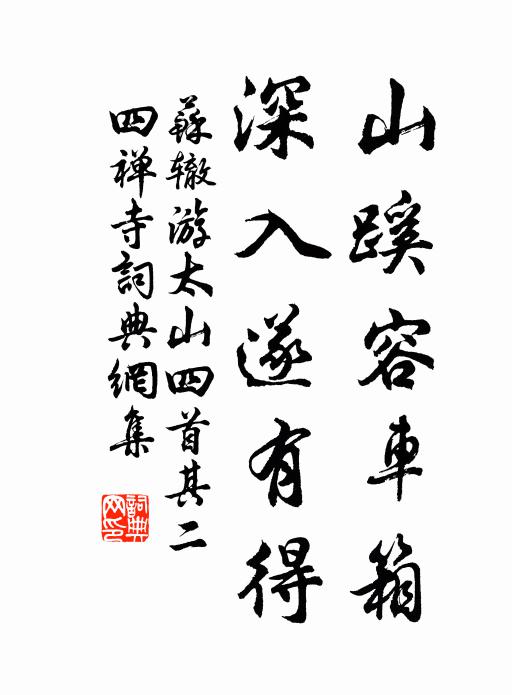 山蹊容車箱
深入遂有得
蘇辙游太山四首其二
四禅寺詞典網集
詞典
网印